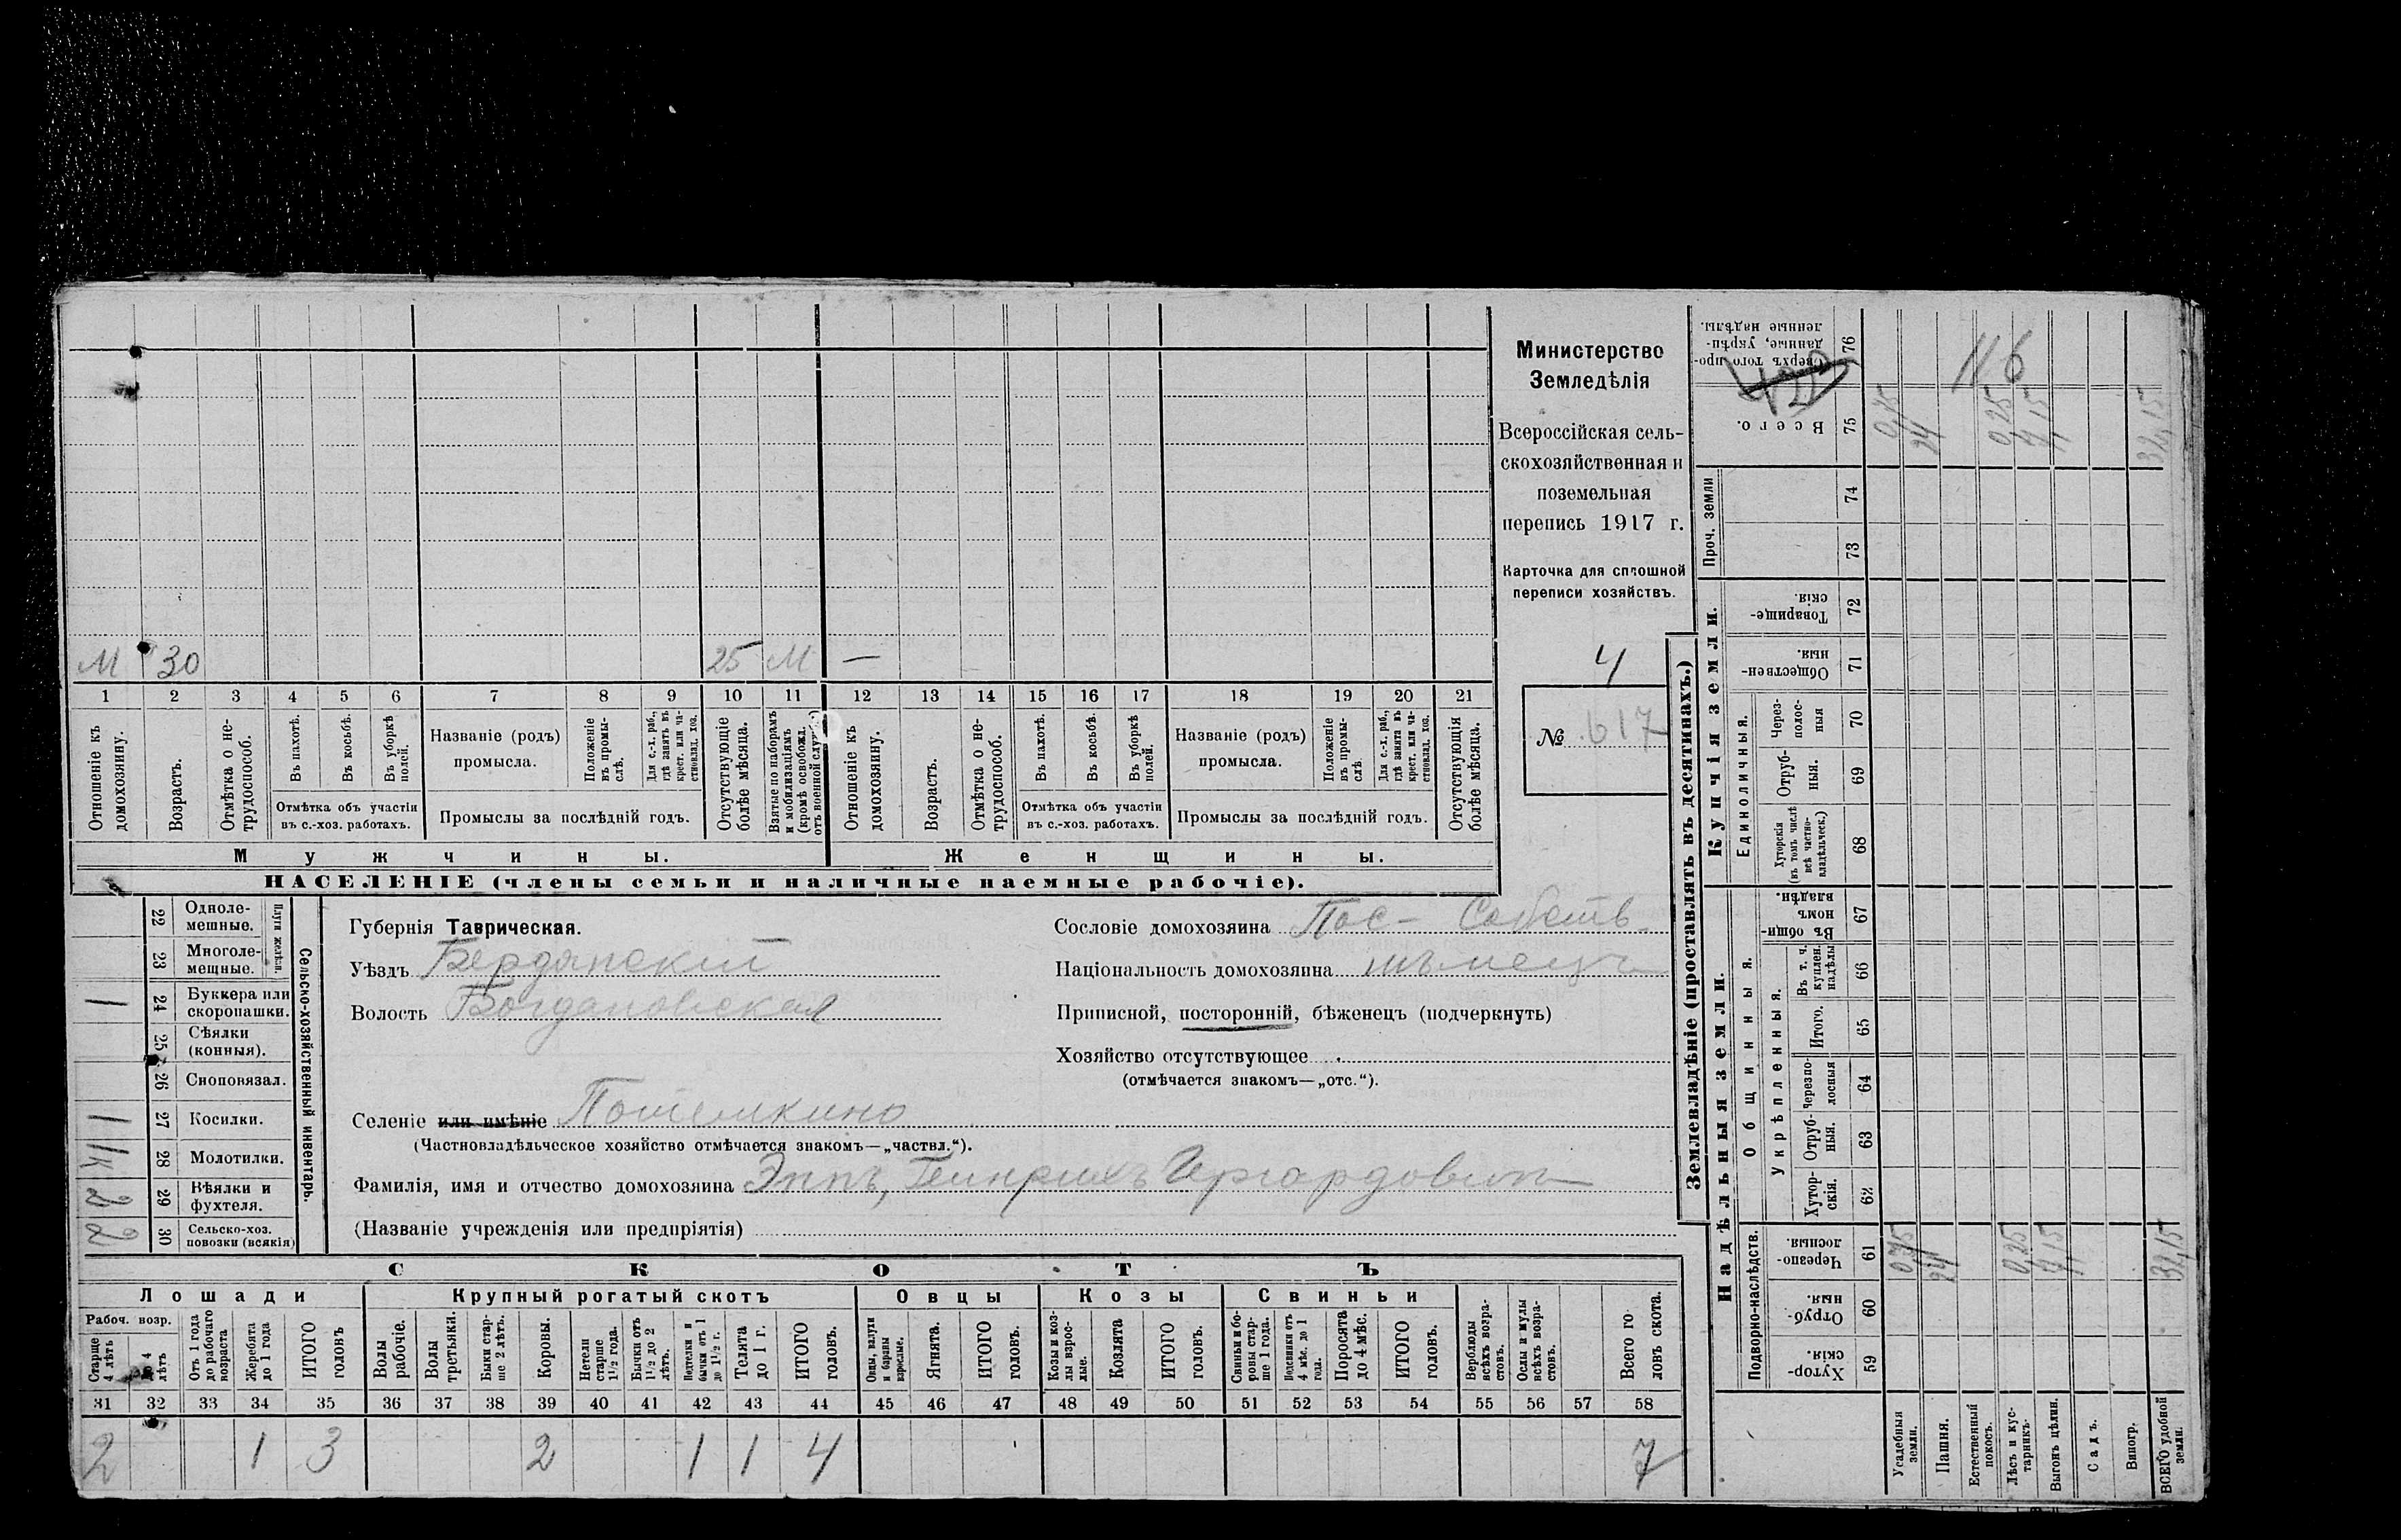 М 30 25 М —
1 2 3 4 5 6 7 8 9 10 11 12 13 14 15 16 17 18 19 20 21
Отношеніе къ домохозяину.
Возрастъ.
Отмѣтка о нетрудоспособ.
Въ пахотѣ.
Въ косьбѣ.
Въ уборкѣ полей.
Отмѣтка объ участіи
въ с.-хоз. работахъ.
Названіе (родъ)
промысла.
Положеніе въ промыслѣ.
Для с.-х. раб., гдѣ занятъ въ крест. или частновлад. хоз.
Промыслы за послѣдній годъ.
Отсутствующіе болѣе мѣсяца.
Взятые по наборамъ и мобилизаціямъ (кромѣ освобожд. отъ военной службы)
Отношеніе къ домохозяину.
Возрастъ.
Отмѣтка о нетрудоспособ.
Въ пахотѣ.
Въ косьбѣ.
Въ уборкѣ полей.
Отмѣтка объ участіи
въ с.-хоз. работахъ.
Названіе (родъ)
промысла.
Положеніе въ промыслѣ.
Для с.-х. раб., гдѣ занята въ крест. или частновлад. хоз.
Промыслы за послѣдній годъ.
Отсутствующія болѣе мѣсяца.
Мужчины. Женщины.
НАСЕЛЕНІЕ (члены семьи и наличные наемные рабочіе).
Министерство
Земледѣлія
Всероссійская сель-
скохозяйственная и
поземельная
перепись 1917 г.
Карточка для сплошной
переписи хозяйствъ.
4
№ 617
Сельско-хозяйственный инвентарь.
Плуги желѣзн.
22 Одноле-
мешные.
23 Многоле-
мешные.
1 24 Буккера или
скоропашки.
25 Сѣялки
(конныя).
26 Сноповязал.
1 27 Косилки.
1к 28 Молотилки.
2 29 Вѣялки и
фухтеля.
2 30 Сельско-хоз.
повозки (всякія)
Губернія Таврическая.
Уѣздъ Бердянскій
Волость Богдановская
Селеніе или имѣніе Потемкино
(Частновладѣльческое хозяйство отмѣчается знакомъ—„частвл.“).
Фамилія, имя и отчество домохозяина Эппъ, Генрихъ Гергардович
(Названіе учрежденія или предпріятія)
Сословіе домохозяина Пос- Собств.
Національность домохозяина нѣмецъ
Приписной, посторонній, бѣженецъ (подчеркнуть)
Хозяйство отсутствующее
(отмѣчается знакомъ—„отс.“).
СКОТЪ
Лошади Крупный рогатый скотъ Овцы Козы Свиньи
Рабоч. возр.
Старше 4 лѣтъ
до 4 лѣтъ
Отъ 1 года до рабочаго возраста
Жеребята до 1 года
ИТОГО головъ
Волы рабочіе.
Волы третьяки.
Быки старше 2 лѣтъ.
Коровы.
Нетели старше 1½ года.
Бычки отъ 1½ до 2 лѣтъ.
бычки отъ 1 до 1½ г.
Телята до 1 г.
ИТОГО головъ.
Овцы, валухи и бараны взрослые.
Ягнята.
ИТОГО головъ.
Козы и козлы взрослые.
Козлята
ИТОГО головъ.
Свиньи и боровы старше 1 года.
Подсвинки отъ 4 мѣс. до 1 года.
Поросята до 4 мѣс.
ИТОГО головъ.
Верблюды всѣхъ возрастовъ.
Ослы и мулы всѣхъ возрастовъ.
Всего головъ скота.
31 32 33 34 35 36 37 38 39 40 41 42 43 44 45 46 47 48 49 50 51 52 53 54 55 56 57 58
2 1 3 2 1 1 4 7
Землевладѣніе (проставлять въ десятинахъ.)
Надѣльныя земли.
Купчія земли.
Подворно-наслѣдств.
Общинныя.
Укрѣпленныя.
Единоличныя.
Проч. земли
Хуторскія. 59
Отрубныя. 60
Черезполосныя. 61
Хуторскія. 62
Отрубныя. 63
Черезполосныя 64
Итого. 65
Въ т. ч. куплен. надѣлы 66
Въ общинномъ владѣн. 67
Хуторскія (въ томъ числѣ всѣ частновладѣльческ.) 68
Отрубныя. 69
Черезполосныя 70
Общественныя. 71
Товарищескія. 72
73
74
Всего. 75
(Сверхъ того проданные, укрѣпленные надѣлы. 76
116
Усадебныя земли. 0,75 0,75
Пашня. 24 24
Естественный покосъ.
Лѣсъ и кустарникъ. 0,25 0,25
Выгонъ цѣлин. 7,15 7,15
Садъ.
Виногр.
ВСЕГО удобной земли. 32,15 32,15